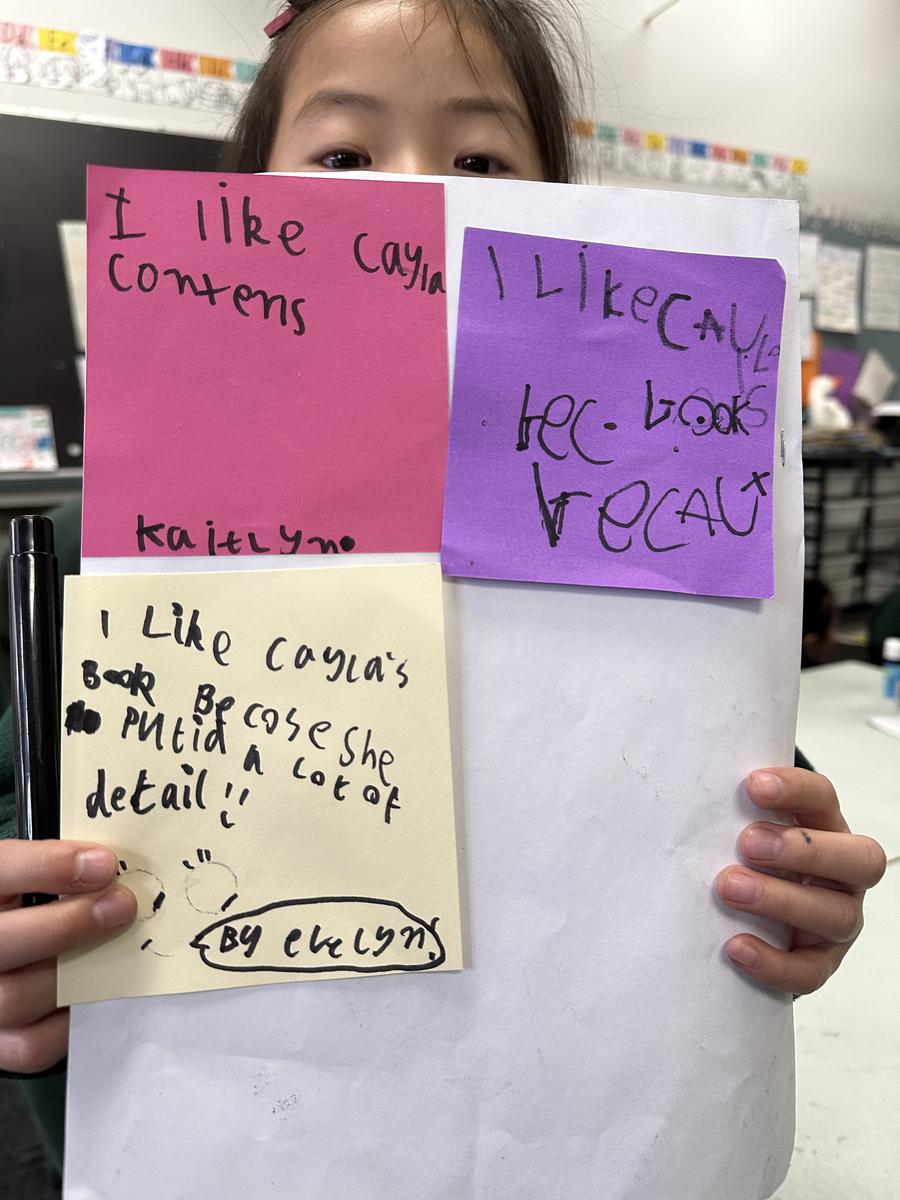 I like Cayla
Contens
Kaitlyn.
I LikeCAYLa
bec. books
becau
I Like Cayla's
Book Becose she
Putid a lot of
detail!!
By evelyn!